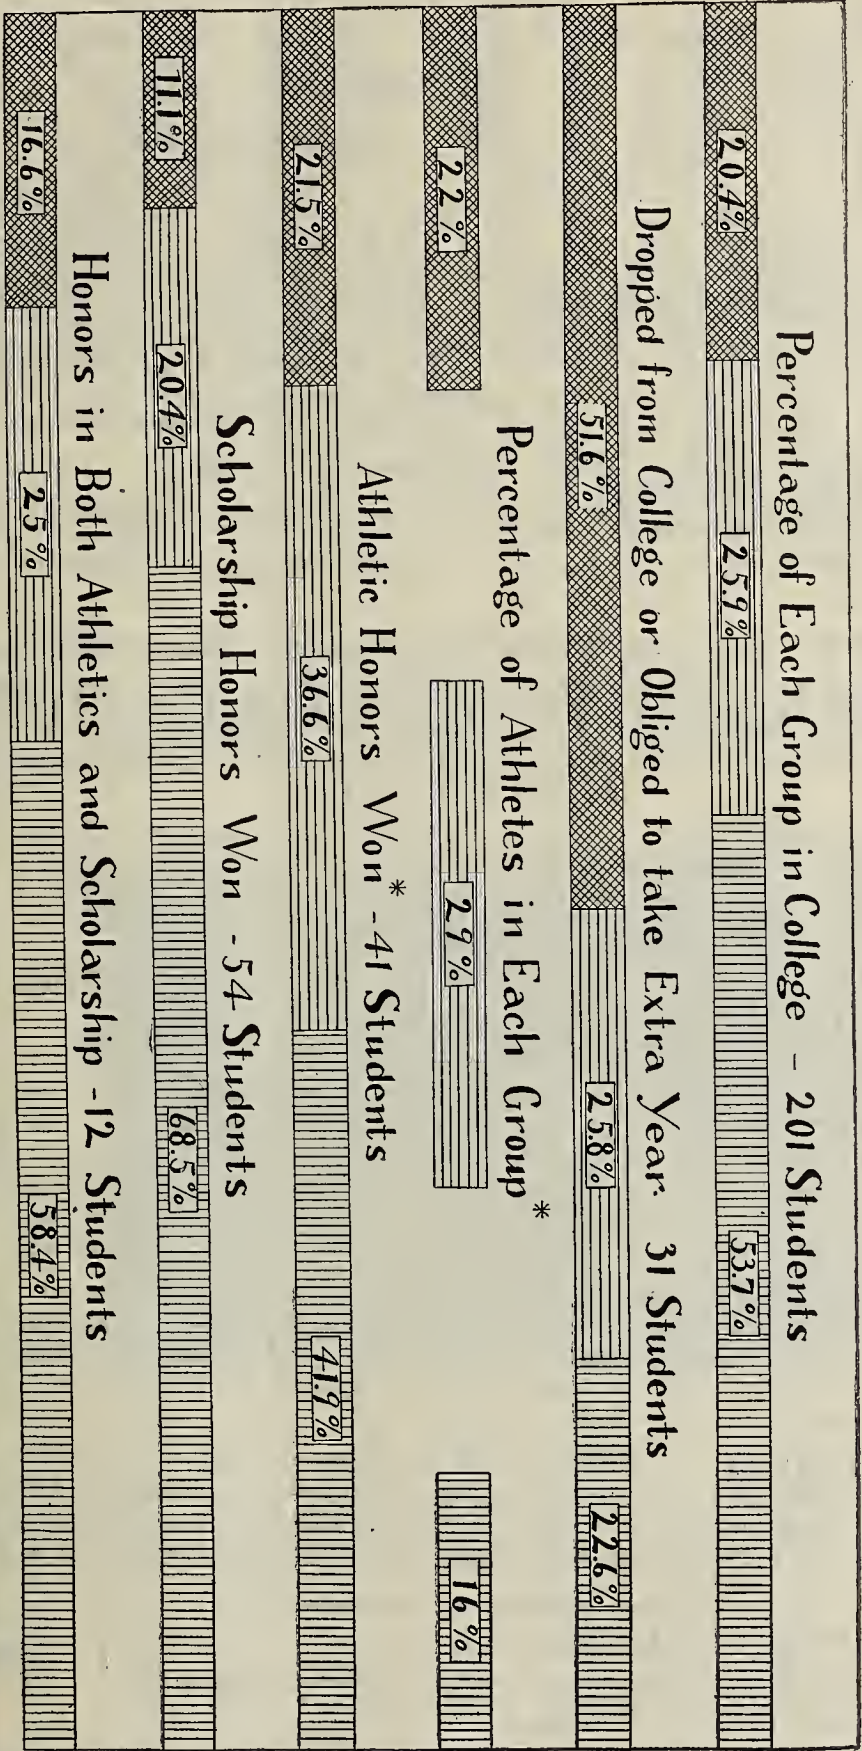 Percentage of Each Group in College - 201 Students
20.4% 25.9% 53.7%
Dropped from College or Obliged to take Extra Year 31 Students
51.6% 25.8% 22.6%
Percentage of Athletes in Each Group*
22% 29% 16%
Athletic Honors Won* - 41 Students
21.5% 36.6% 41.9%
Scholarship Honors Won - 54 Students
11.1% 20.4% 68.5%
Honors in Both Athletics and Scholarship - 12 Students
16.6% 25% 58.4%